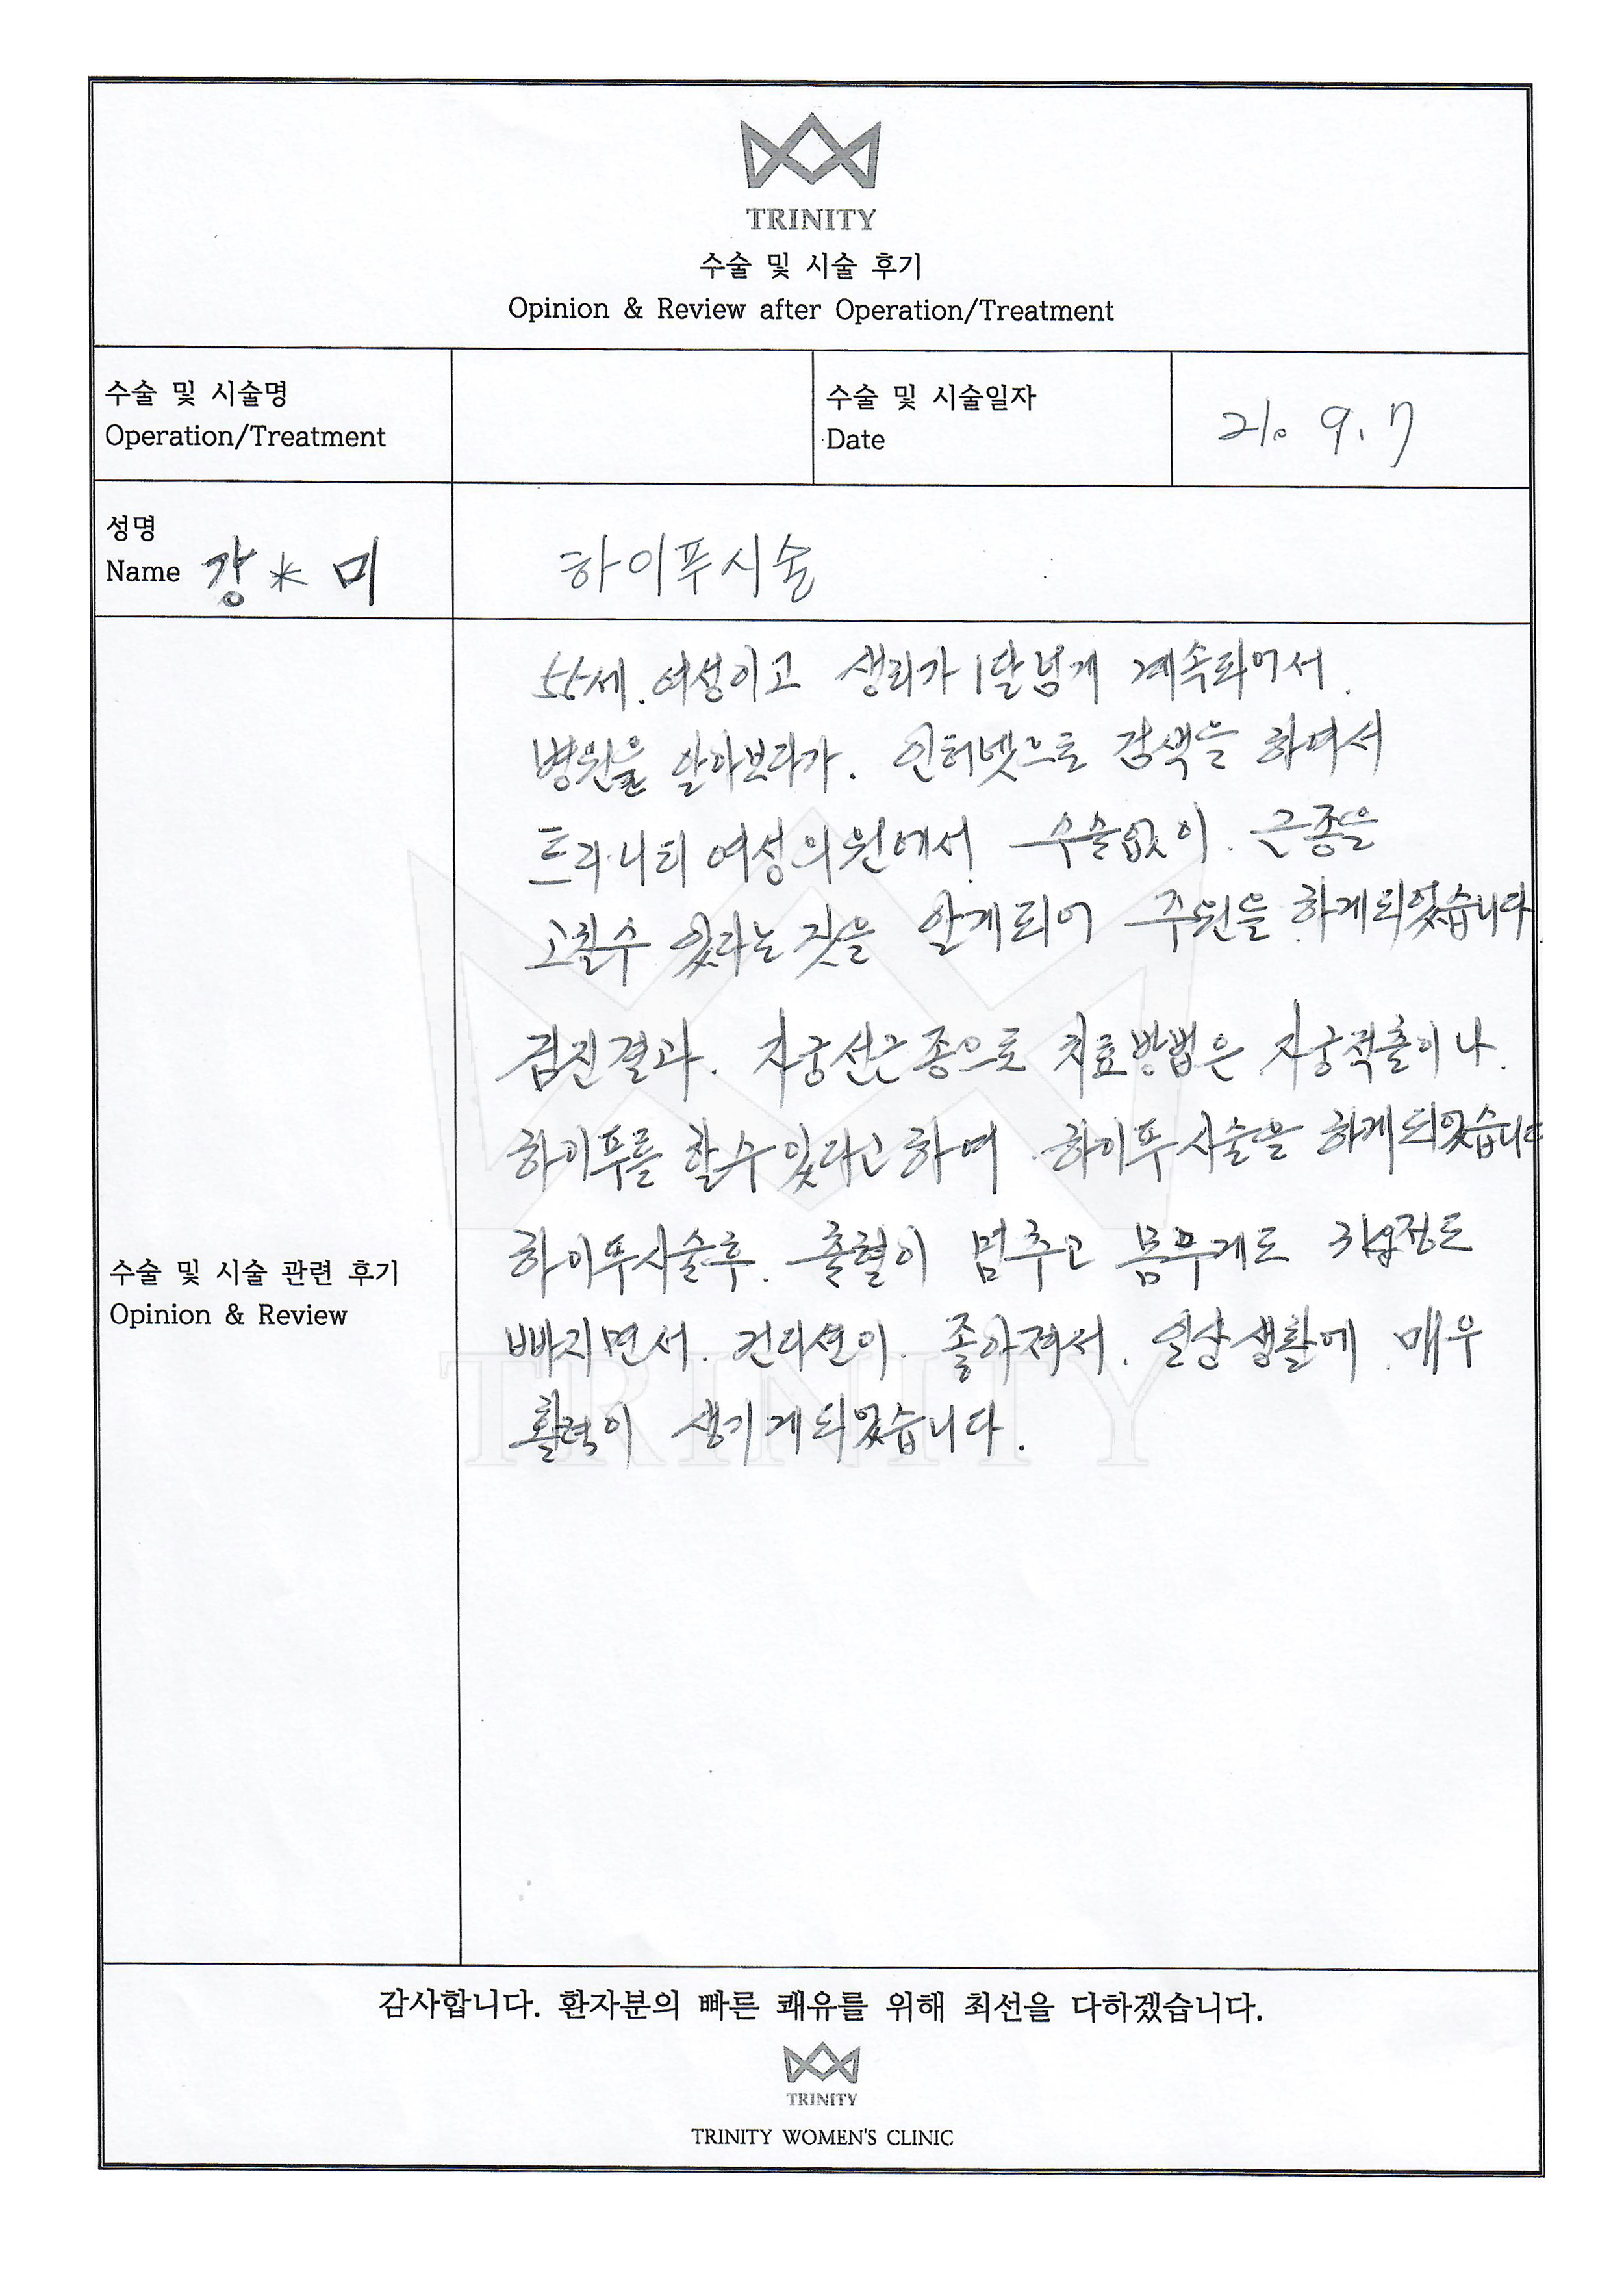 TRINITY
수술 및 시술 후기
Opinion & Review after Operation/Treatment
수술 및 시술명
Operation/Treatment
수술 및 시술일자
Date
21. 9. 7
성명
Name 강*미
하이푸시술
55세. 여성이고 생리가 1달넘게 계속되어서.
병원을 알아보다가. 인터넷으로 검색을 하여서
트리니티 여성의원에서. 수술없이. 근종을
고칠수 있다는 것을 알게되어 주원을 하게되었습니다.
검진결과. 자궁선근종으로 치료방법은 자궁적출이나.
하이푸를 할수있다고하여. 하이푸시술을 하게되었습니다
하이푸시술후. 출혈이 멈추고 몸무게도 3kg정도
빠지면서. 컨디션이. 좋아져서. 일상생활에. 매우
활력이 생기게되었습니다.
수술 및 시술 관련 후기
Opinion & Review
TRINITY
감사합니다. 환자분의 빠른 쾌유를 위해 최선을 다하겠습니다.
TRINITY
TRINITY WOMEN'S CLINIC